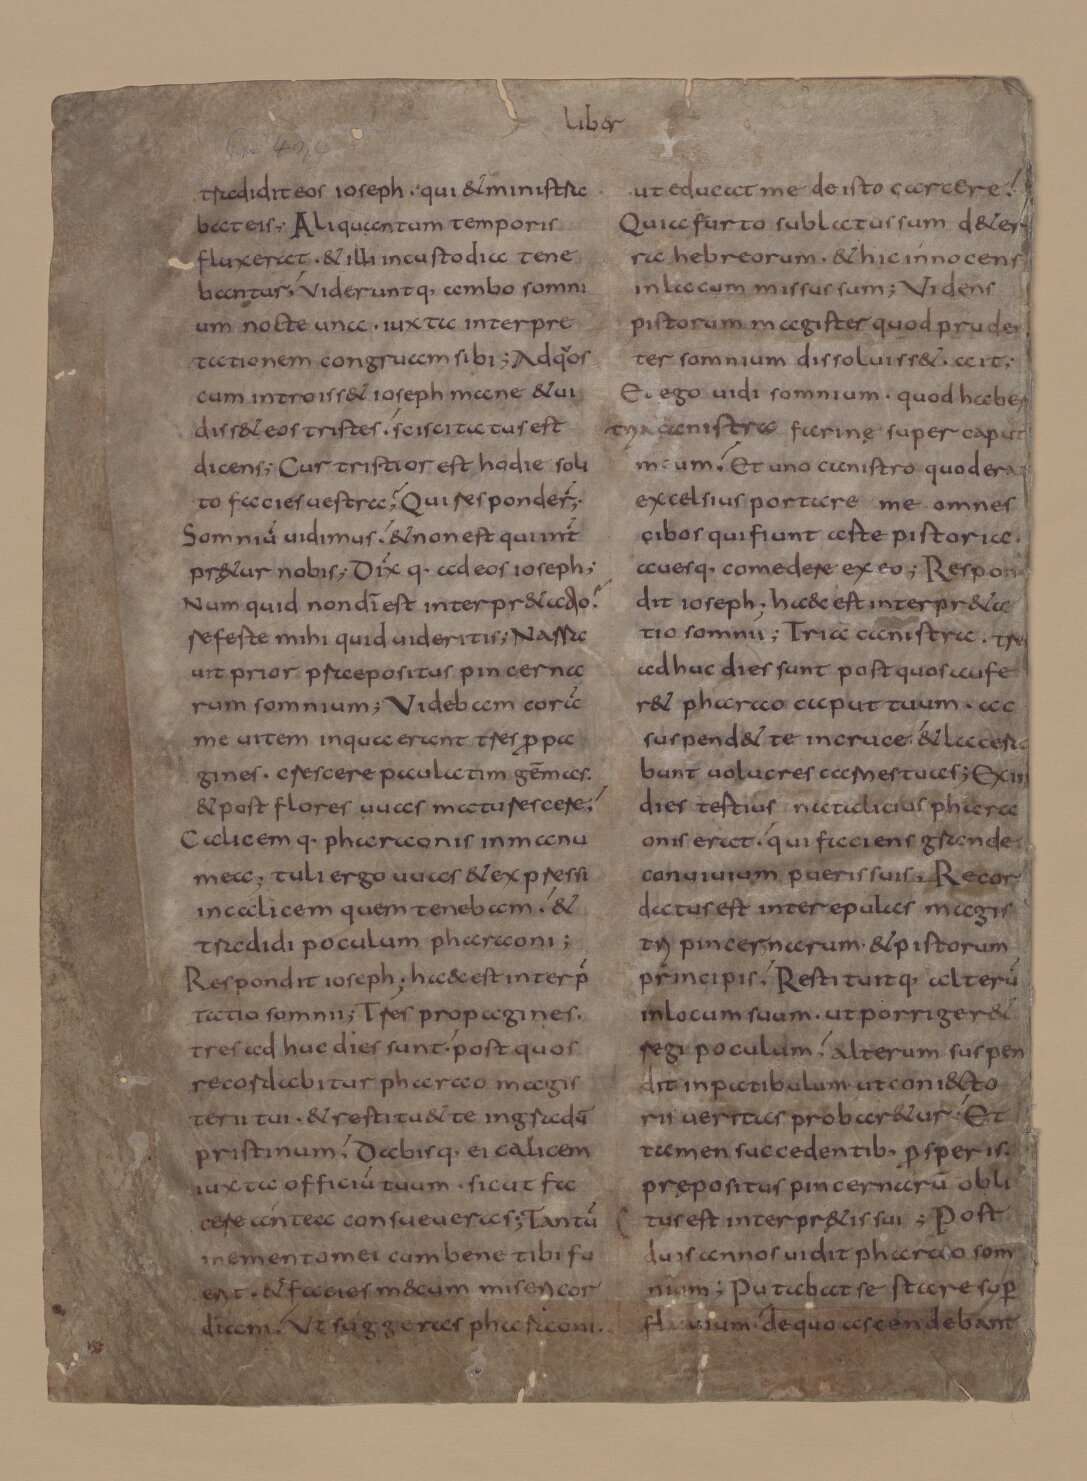 liber
tradidit eos ioseph · qui & ministra
bat eis; Aliquantum temporis
fluxerat · & illi in custodia tene
bantur; Videruntq· ambo somni
um nocte una · iuxta interpre
tationem congruam sibi; Ad q̊s
cum introiss& ioseph mane & ui
diss& eos tristes · sciscitatus est
dicens; Cur tristior est hodie soli
to facies uestra; Qui responder̄·
Somniū uidimus · & non est qui int̄
pr&ur nobis; Dix̄ q· ad eos ioseph;
Num quid non dī est interpr&atio·
referte mihi quid uideritis; Narra
uit prior praepositus pincerna
rum somnium; Videbam corā
me uitem in qua erant tres ꝓpa
gines · crescere paulatim gēmas·
& post flores uuas maturescere;
Calicem q· pharaonis in manu
mea; tuli ergo uuas & expressi
in calicem quem tenebam · &
tradidi poculum pharaoni;
Respondit ioseph; haec est interp̄
tatio somnii; Tres propagines·
tres ad huc dies sunt · post quos
recordabitur pharao magis
terii tui · & restitu& te in gradū
pristinum; Dabisq· ei calicem
iuxta officiū tuum · sicut fa
cere antea consueueras; Tantū
memento mei cum bene tibi fu
erit · & facies mecum misericor
diam; Ut suggeras pharaoni·
ut educat me de isto carcere;
Quia furto sublatus sum de ter
ra hebreorum · & hic innocens
in lacum missus sum; Videns
pistorum magister quod pruden
ter somnium dissoluiss& · ait;
Et ego uidi somnium · quod haber
tria canistra farine super caput
meum; Et uno canistro quod erat
excelsius portare me omnes
cibos qui fiunt arte pistoria·
auesq· comedere ex eo; Respon
dit ioseph; haec est interpr&a
tio somnii; Tria canistra · tres
ad huc dies sunt post quos aufe
r& pharao caput tuum · ac
suspend& te in cruce · & lacera
bunt uolucres carnes tuas; Exin
dies tertius natalicius phara
onis erat · qui faciens grande
conuiuium pueris suis; Recor
datus est inter epulas magis
tri pincernarum · & pistorum
principis; Restituitq· alterū
in locum suum · ut porriger&
regi poculum; alterum suspen
dit in patibulum · ut coniecto
ris ueritas probar&ur; Et
tamen succedentib· ꝓsperis·
prępositus pincernarū obli
tus est interpr&is sui; Post
duos annos uidit pharao som
nium; Putabat se stare suꝑ
fluuium · de quo ascendebant